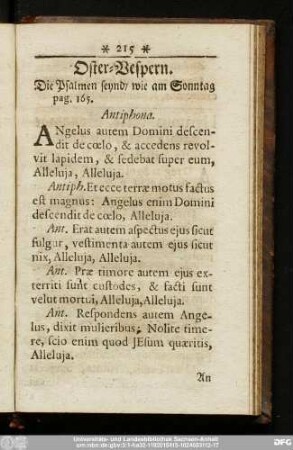 * 215 *
Oster-Vespern.
Die Psalmen seynd/ wie am Sonntag
pag. 165.
Antiphona.
ANgelus autem Domini descen-
dit de cœlo, & accedens revol-
vit lapidem, & sedebat super eum,
Alleluja, Alleluja.
Antiph. Et ecce terræ motus factus
est magnus: Angelus enim Domini
descendit de cœlo, Alleluja.
Ant. Erat autem aspectus ejus sicut
fulgur, vestimenta autem ejus sicut
nix, Alleluja, Alleluja.
Ant. Præ timore autem ejus ex-
territi sunt custodes, & facti sunt
velut mortui, Alleluja, Alleluja.
Ant. Respondens autem Ange-
lus, dixit mulieribus; Nolite time-
re, scio enim quod JEsum quæritis,
Alleluja.
An
Universitäts- und Landesbibliothek Sachsen-Anhalt
DFG